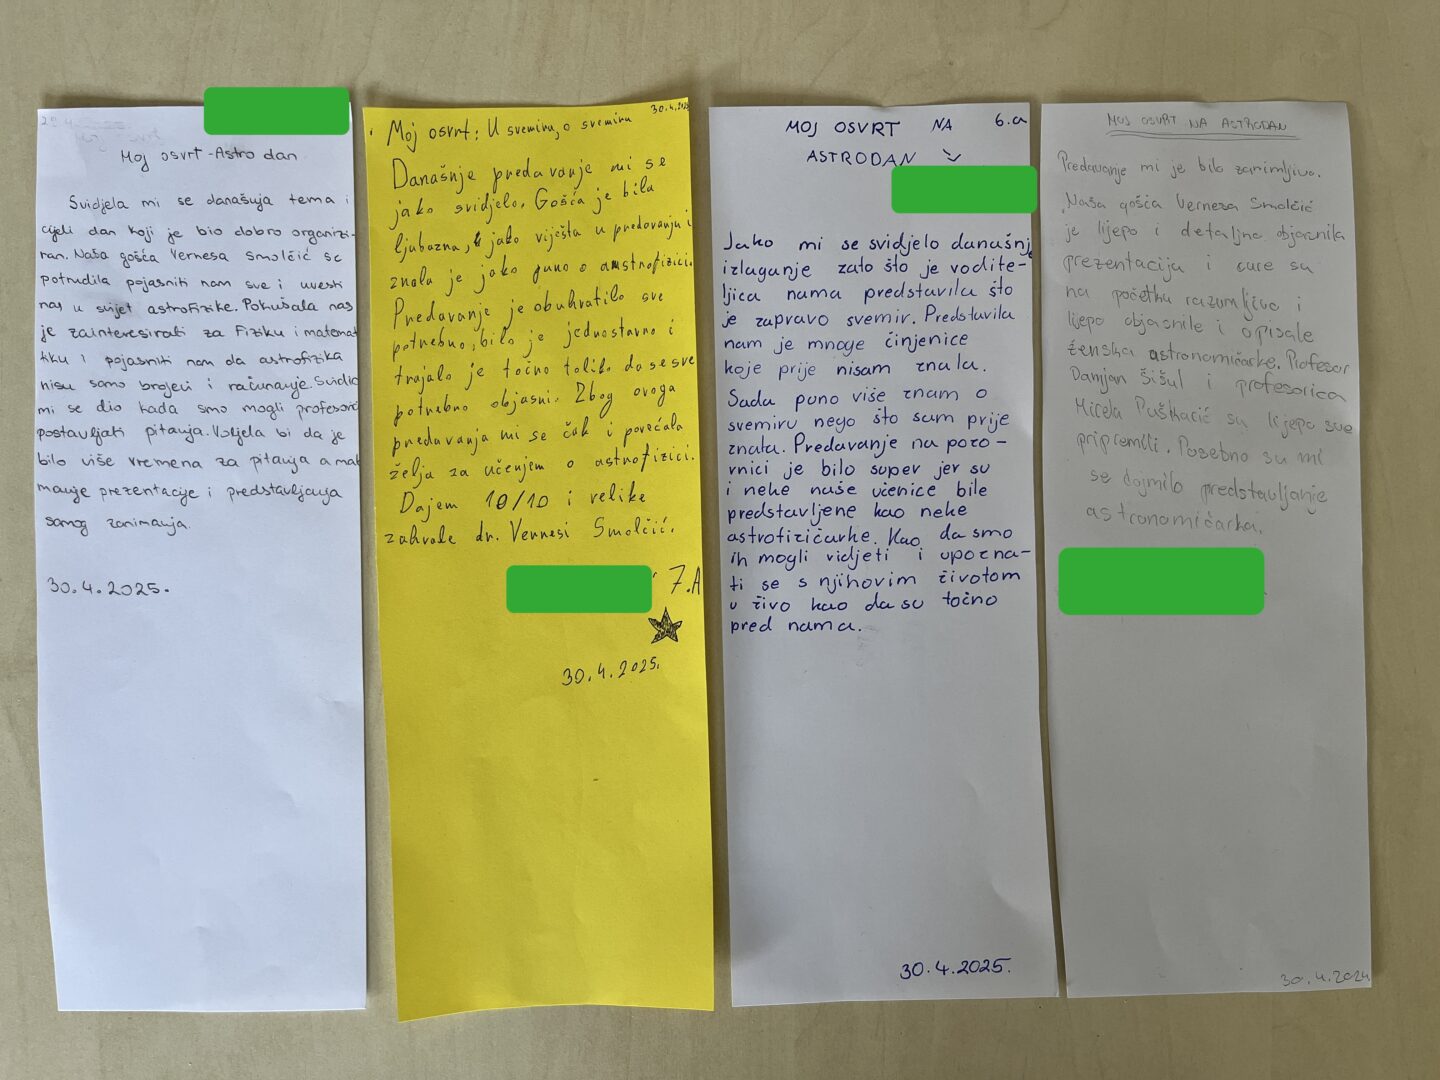 Moj osvrt-Astro dan
Svidjela mi se današnja tema i
cijeli dan koji je bio dobro organizi-
ran. Naša gošća Vernesa Smolčić se
potrudila pojasniti nam sve i uvesti
nas u svijet astrofizike. Pokušala nas
je zainteresirati za fiziku i matemat
tiku i pojasniti nam da astrofizika
nisu samo brojevi i računanje. Svidio
mi se dio kada smo mogli profesorici
postavljati pitanja. Voljela bi da je
bilo više vremena za pitanja a mal
manje prezentacije i predstavljanja
samog zanimanja.
30.4.2025.
30.4.2025
Moj osvrt: U svemiru, o svemiru
Današnje predavanje mi se
jako svidjelo. Gošća je bila
ljubazna, jako vješta u predavanju i
znala je jako puno o astrofizici.
Predavanje je obuhvatilo sve
potrebno, bilo je jednostavno i
trajalo je točno toliko da se sve
potrebno objasni. Zbog ovoga
predavanja mi se čak i povećala
želja za učenjem o astrofizici.
Dajem 10/10 i velike
zahvale dr. Vernesi Smolčić.
7.A
30.4.2025.
MOJ OSVRT NA 6.a
ASTRODAN
Jako mi se svidjelo današnje
izlaganje zato što je vodite-
ljica nama predstavila što
je zapravo svemir. Predstavila
nam je mnoge činjenice
koje prije nisam znala.
Sada puno više znam o
svemiru nego što sam prije
znala. Predavanje na pozo-
rnici je bilo super jer su
i neke naše učenice bile
predstavljene kao neke
astrofizičarke. Kao da smo
ih mogli vidjeti i upozna-
ti se s njihovim životom
u živo kao da su točno
pred nama.
30.4.2025.
MOJ OSVRT NA ASTRODAN
Predavanje mi je bilo zanimljivo.
Naša gošća Vernesa Smolčić
je lijepo i detaljno objasnila
prezentacija i cure su
na početku razumljivo i
lijepo objasnile i opisale
ženska astronomičarke. Profesor
Damjan Šišul i profesorica
Mirela Puškarić su lijepo sve
pripremili. Posebno su mi
se dojmilo predstavljanje
astronomičarka.
30.4.2024